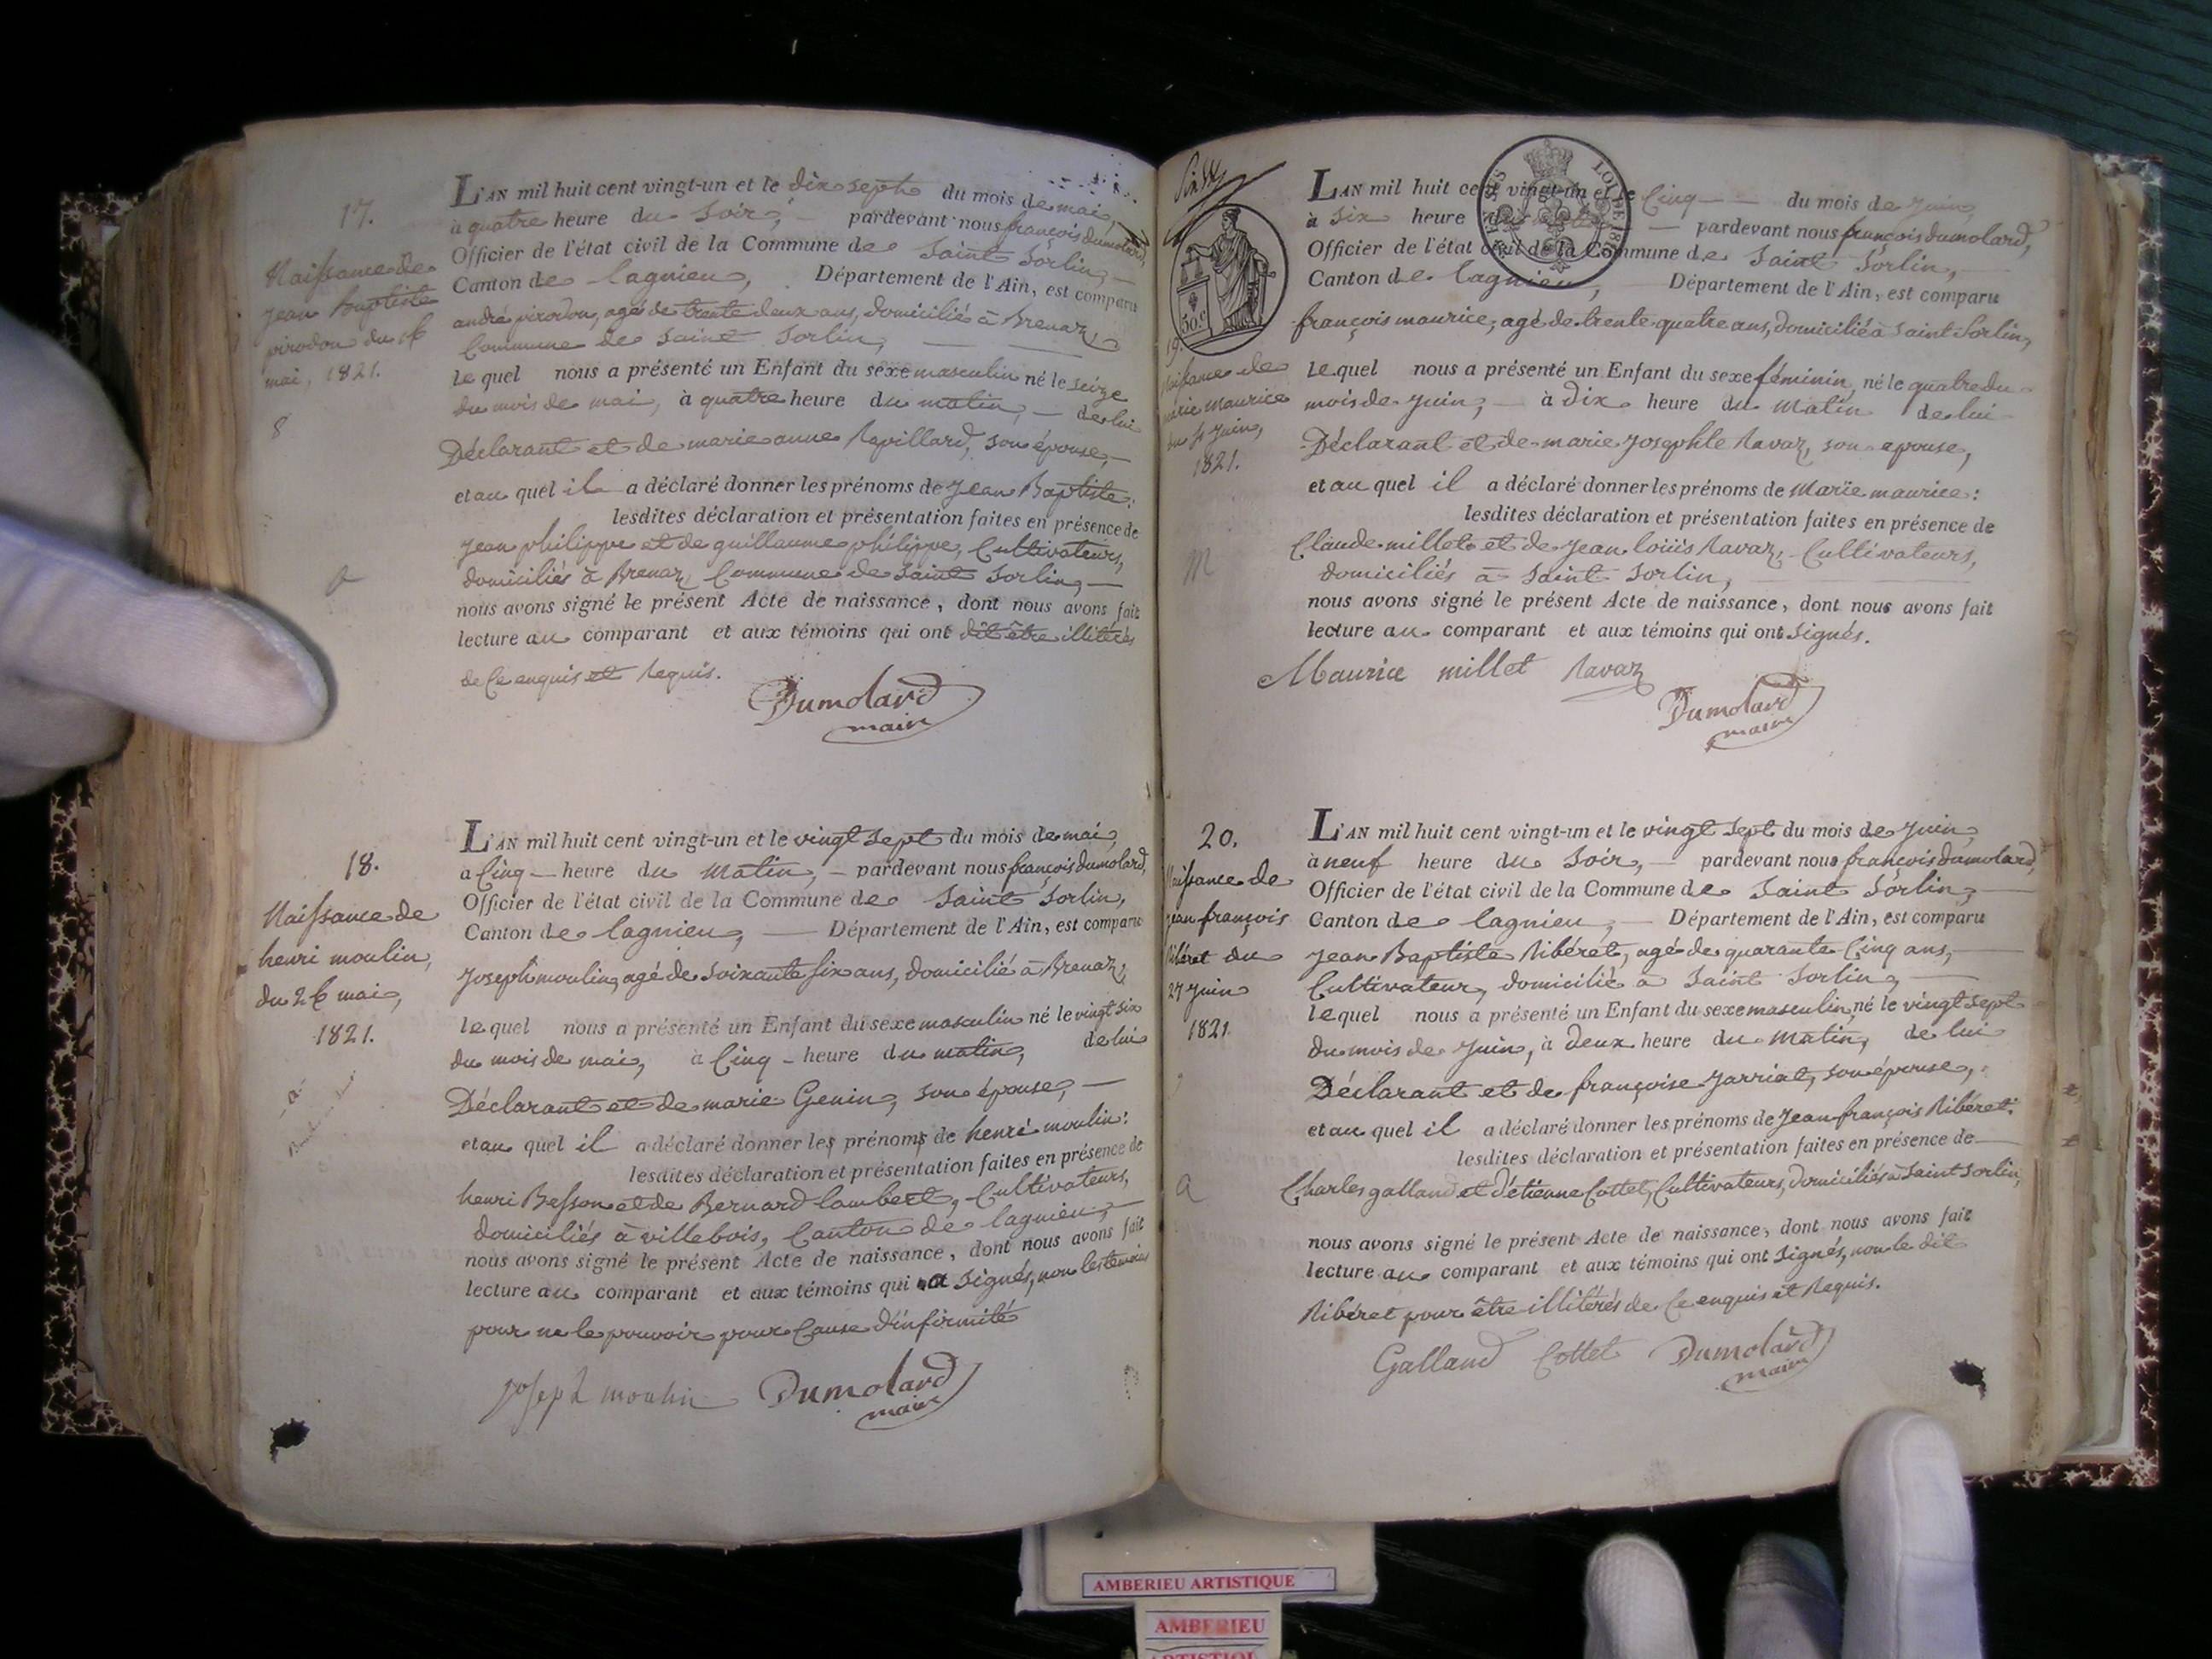 17.
Naissance de
jean Baptiste
pirodon du 16
mai, 1821.
8
L'AN mil huit cent vingt-un et le dix sept du mois de mai,
à quatre heure du soir, pardevant nous françois dumolard,
Officier de l'état civil de la Commune de Saint Sorlin,
Canton de lagnieu, Département de l'Ain, est comparu
andré pirodon, agé de trente deux ans, domicilié à Brenaz,
Commune de Saint Sorlin,
lequel nous a présenté un Enfant du sexe masculin né le seize
du mois de mai, à quatre heure du matin, de lui
Déclarant et de marie anne Rapillard, son épouse,
et au quel il a déclaré donner les prénoms de Jean Baptiste:
lesdites déclaration et présentation faites en présence de
jean philippe et de guillaume philippe, Cultivateurs,
domiciliés à Brenaz, Commune de Saint Sorlin,
nous avons signé le présent Acte de naissance, dont nous avons fait
lecture au comparant et aux témoins qui ont dit être illitérés
de ce enquis et Requis.
Dumolard
maire
18.
Naissance de
henri moulin,
du 26 mai,
1821.
L'AN mil huit cent vingt-un et le vingt sept du mois de mai,
a Cinq heure du matin, pardevant nous françois dumolard,
Officier de l'état civil de la Commune de Saint Sorlin,
Canton de lagnieu, Département de l'Ain, est comparu
Joseph moulin, agé de soixante six ans, domicilié à Brenaz,
lequel nous a présenté un Enfant du sexe masculin né le vingt six
du mois de mai, à Cinq heure du matin, de lui
Déclarant et de marie Genin, son épouse,
et au quel il a déclaré donner les prénoms de henri moulin:
lesdites déclaration et présentation faites en présence de
henri Besson et de Bernard lambert, Cultivateurs,
domiciliés à villebois, Canton de lagnieu,
nous avons signé le présent Acte de naissance, dont nous avons fait
lecture au comparant et aux témoins qui a signés, non les temoins
pour ne le pouvoir pour Cause d'infirmité
joseph moulin Dumolard
maire
30.c
19.
Naissance de
marie maurice
du 4 juin,
1821.
M
L'AN mil huit cent vingt-un et le Cinq du mois de juin,
à six heure du pardevant nous françois dumolard,
Officier de l'état civil de la Commune de Saint Sorlin,
Canton de lagnieu, Département de l'Ain, est comparu
françois maurice, agé de trente quatre ans, domicilié à Saint Sorlin,
lequel nous a présenté un Enfant du sexe féminin, né le quatre du
mois de juin, à dix heure du matin de lui
Déclarant et de marie josephte Ravaz, son epouse,
et au quel il a déclaré donner les prénoms de Marie maurice:
lesdites déclaration et présentation faites en présence de
Claude millet et de jean louis Ravaz, Cultivateurs,
domiciliés à Saint Sorlin,
nous avons signé le présent Acte de naissance, dont nous avons fait
lecture au comparant et aux témoins qui ont signés.
Maurice millet Ravaz
Dumolard
maire
20.
Naissance de
jean françois
Ribéret du
27 juin
1821.
a
L'AN mil huit cent vingt-un et le vingt sept du mois de juin,
à neuf heure du soir, pardevant nous françois dumolard,
Officier de l'état civil de la Commune de Saint Sorlin,
Canton de lagnieu, Département de l'Ain, est comparu
jean Baptiste Ribéret, agé de quarante Cinq ans,
Cultivateur, domicilié à Saint Sorlin,
lequel nous a présenté un Enfant du sexe masculin, né le vingt sept
du mois de juin, à deux heure du matin, de lui
Déclarant et de françoise jarriat, son épouse,
et au quel il a déclaré donner les prénoms de jean françois Ribéret:
lesdites déclaration et présentation faites en présence de
Charles galland et d'étienne Cottet, Cultivateurs, domiciliés à Saint Sorlin,
nous avons signé le présent Acte de naissance, dont nous avons fait
lecture au comparant et aux témoins qui ont signés, non le dit
Ribéret pour être illitérés de Ce enquis et Requis.
Galland Cottet Dumolard
maire
AMBERIEU ARTISTIQUE
AMBERIEU
ARTISTIQUE